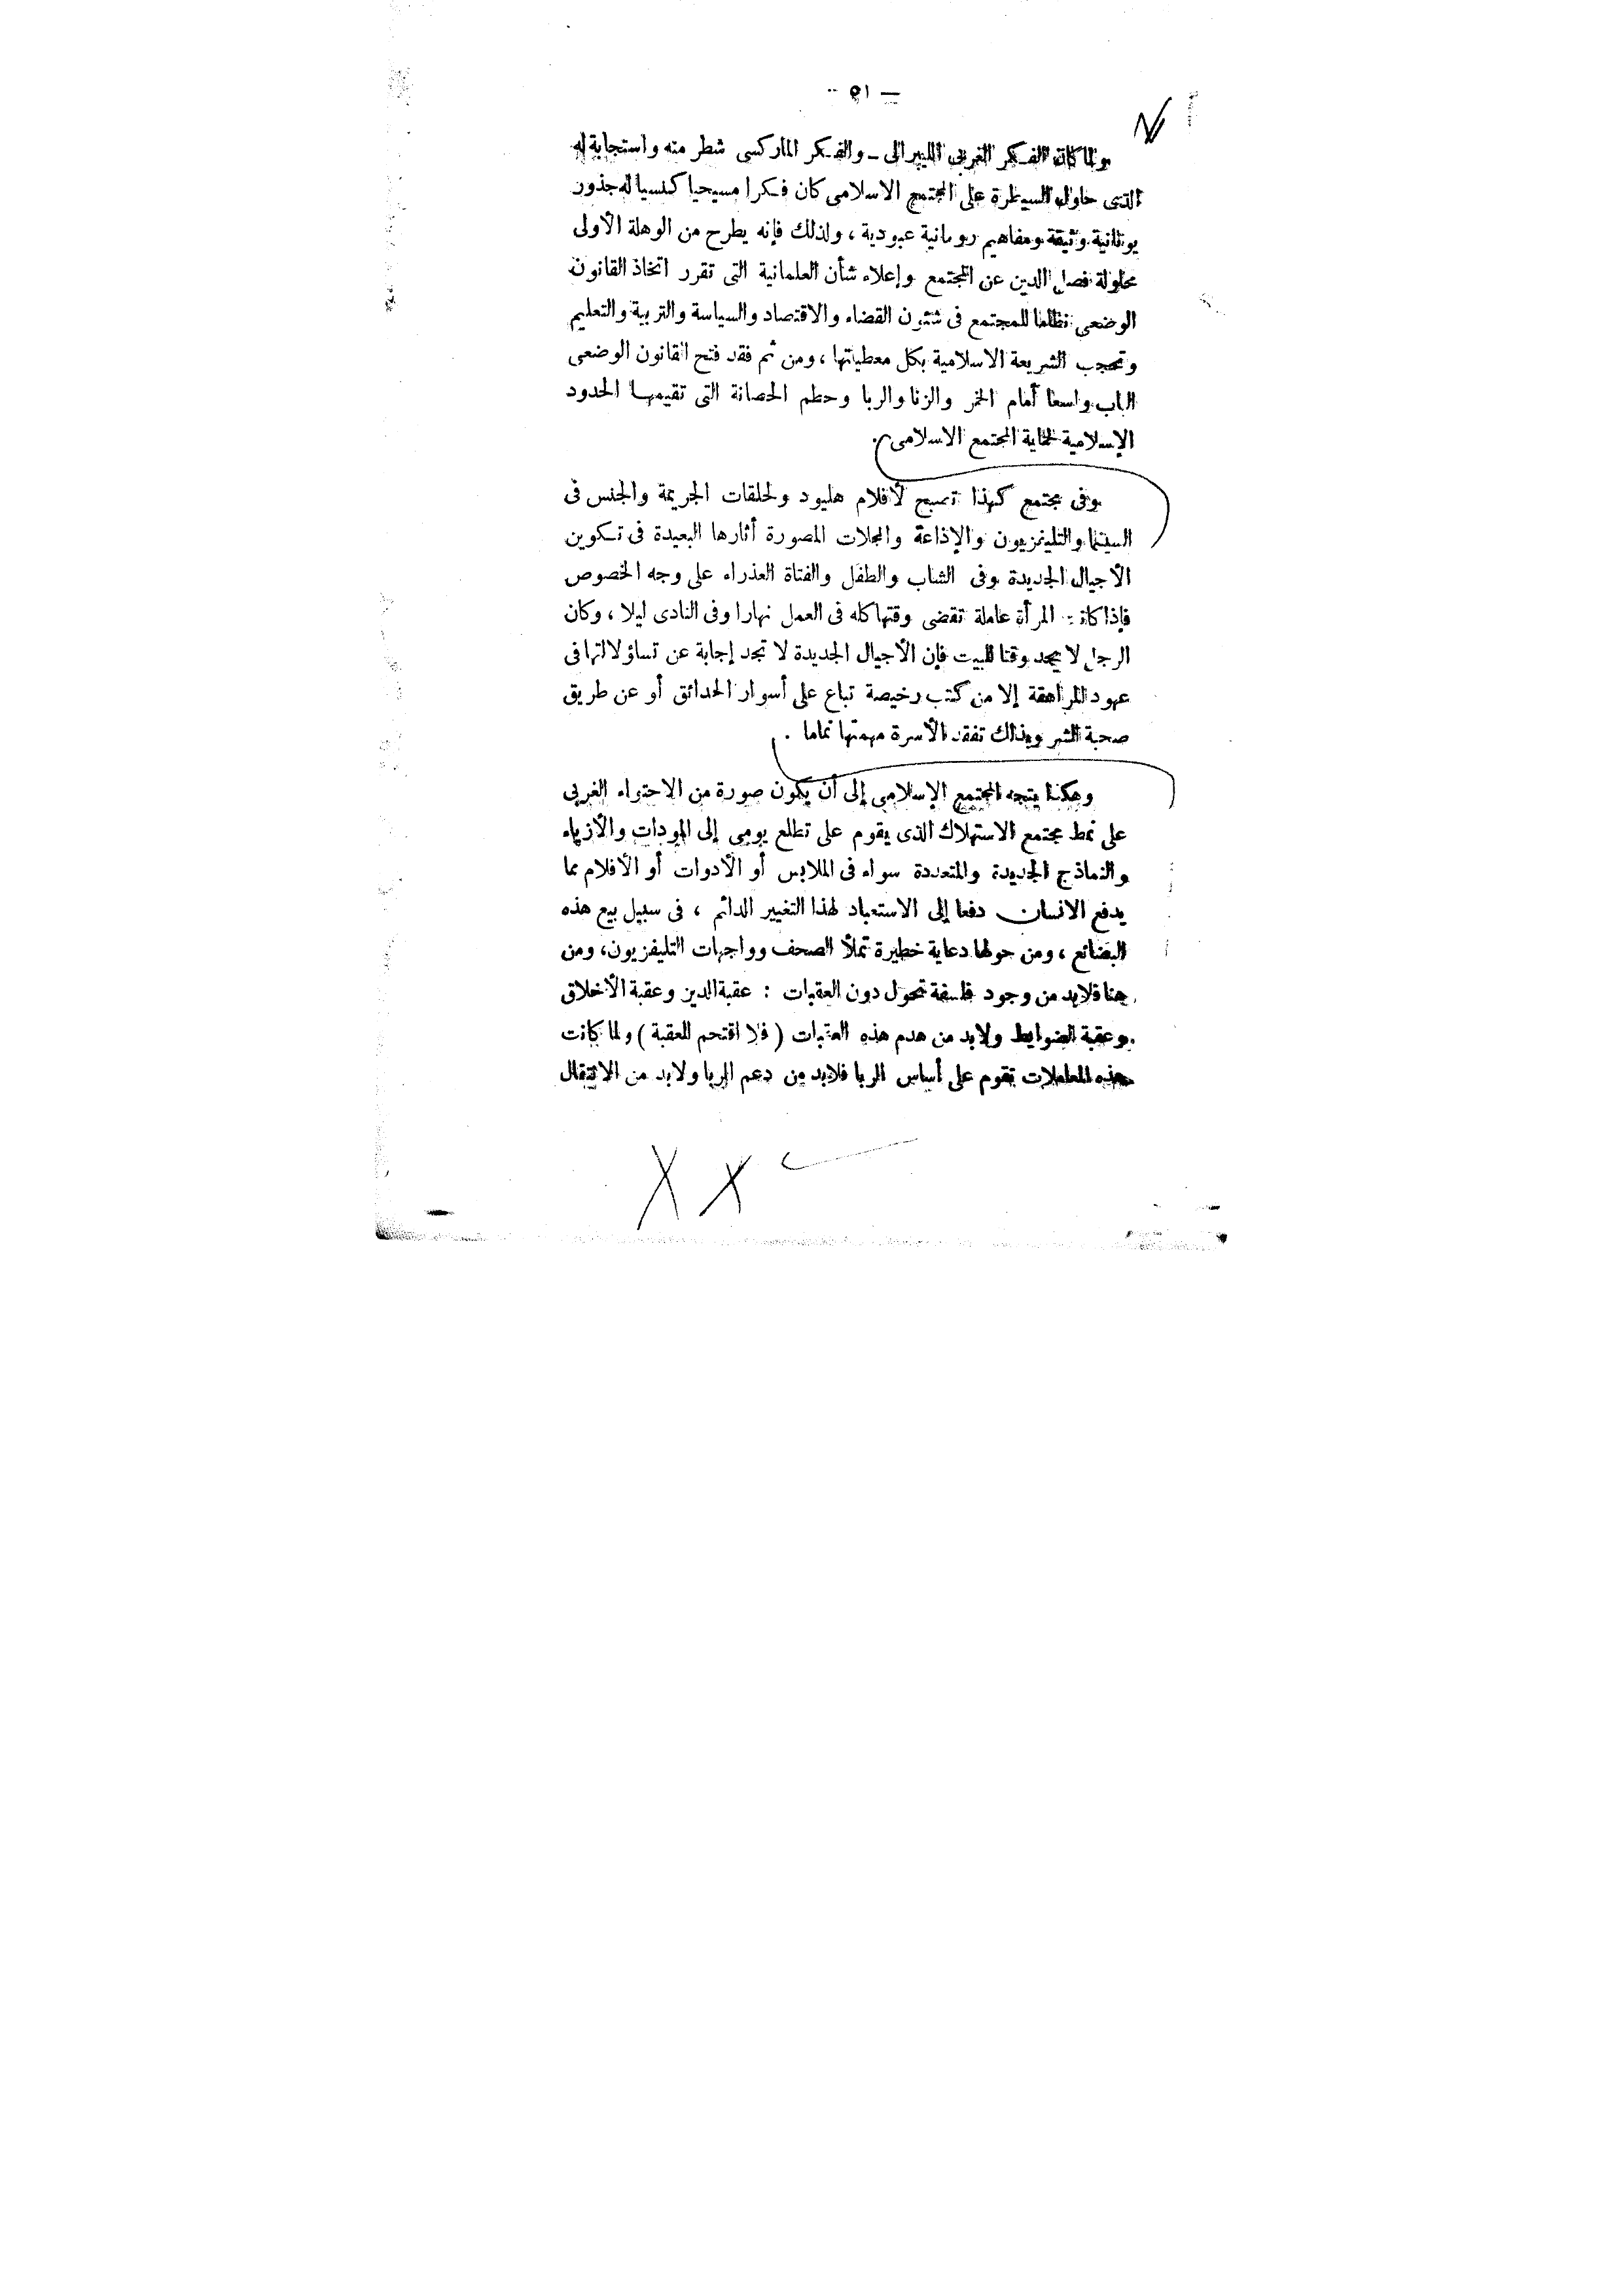 — ٥١ —
ولما كان الفكر الغربى الليبرالى - والفكر الماركسى شطر منه واستجابة له
الذى حاول السيطرة على المجتمع الاسلامى كان فكرا مسيحيا كنسيا له جذور
يونانية وثيقة ومفاهيم رومانية عبودية ، ولذلك فإنه يطرح من الوهلة الأولى
محاولة فصل الدين عن المجتمع وإعلاء شأن العلمانية التى تقرر اتخاذ القانون
الوضعى نظاما للمجتمع فى شئون القضاء والاقتصاد والسياسة والتربية والتعليم
وتحجب الشريعة الاسلامية بكل معطياتها ، ومن ثم فقد فتح القانون الوضعى
الباب واسعا أمام الخمر والزنا والربا وحطم الحصانة التى تقيمها الحدود
الإسلامية لحماية المجتمع الاسلامى .
وفى مجتمع كهذا تصبح لأفلام هليود ولحلقات الجريمة والجنس فى
السينما والتليفزيون والإذاعة والمجلات المصورة أثارها البعيدة فى تكوين
الأجيال الجديدة وفى الشاب والطفل والفتاة العذراء على وجه الخصوص
فإذا كانت المرأة عاملة تقضى وقتها كله فى العمل نهارا وفى النادى ليلا ، وكان
الرجل لا يجد وقتا للبيت فإن الأجيال الجديدة لا تجد إجابة عن تساؤلاتها فى
عهود المراهقة إلا من كتب رخيصة تباع على أسوار الحدائق أو عن طريق
صحبة الشر وبذلك تفقد الأسرة مهمتها تماما .
وهكذا يتجه المجتمع الإسلامى إلى أن يكون صورة من الاحتواء الغربى
على نمط مجتمع الاستهلاك الذى يقوم على تطلع يومى إلى المودات والأزياء
والنماذج الجديدة والمتعددة سواء فى الملابس أو الأدوات أو الأفلام مما
يدفع الانسان دفعا إلى الاستعباد لهذا التغيير الدائم ، فى سبيل بيع هذه
البضائع ، ومن حولها دعاية خطيرة تملأ الصحف وواجهات التليفزيون، ومن
هنا فلابد من وجود فلسفة تحول دون العقبات : عقبة الدين وعقبة الأخلاق
وعقبة الضوابط ولابد من هدم هذه العقبات ( فلا اقتحم العقبة ) ولما كانت
هذه المعاملات تقوم على أساس الربا فلابد من دعم الربا ولابد من الانتقال